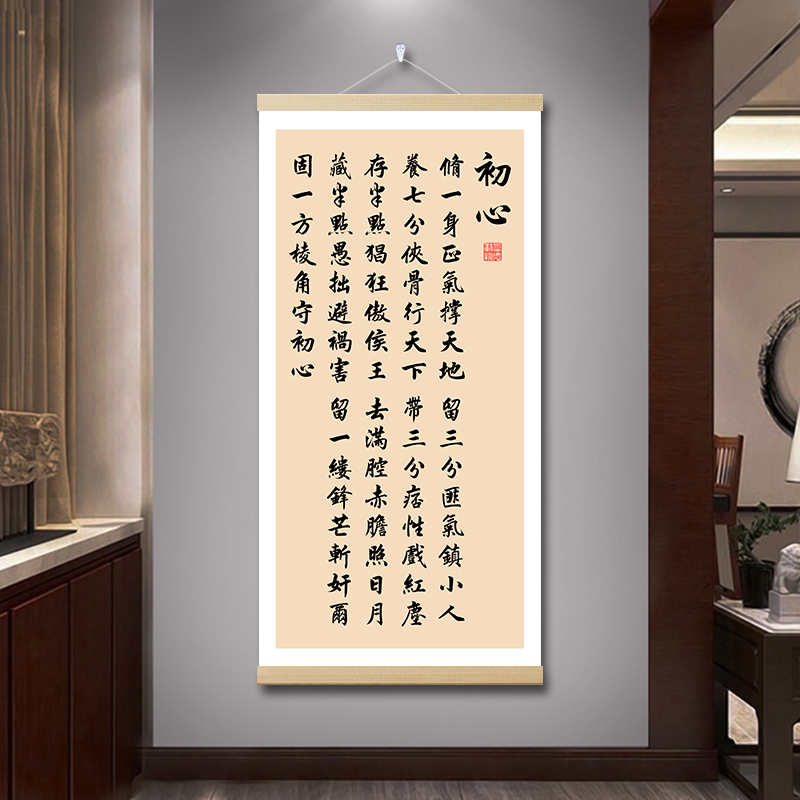 初心
脩一身正氣撐天地 留三分匪氣鎮小人
養七分俠骨行天下 帶三分痞性戲紅塵
存半點猖狂傲侯王 去滿腔赤膽照日月
藏半點愚拙避禍害 留一縷鋒芒斬奸爾
固一方棱角守初心